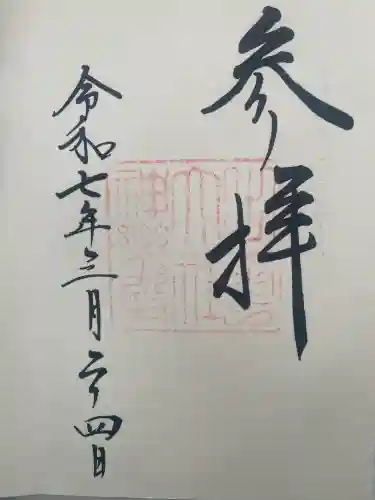 参拝
令和七年三月二十四日